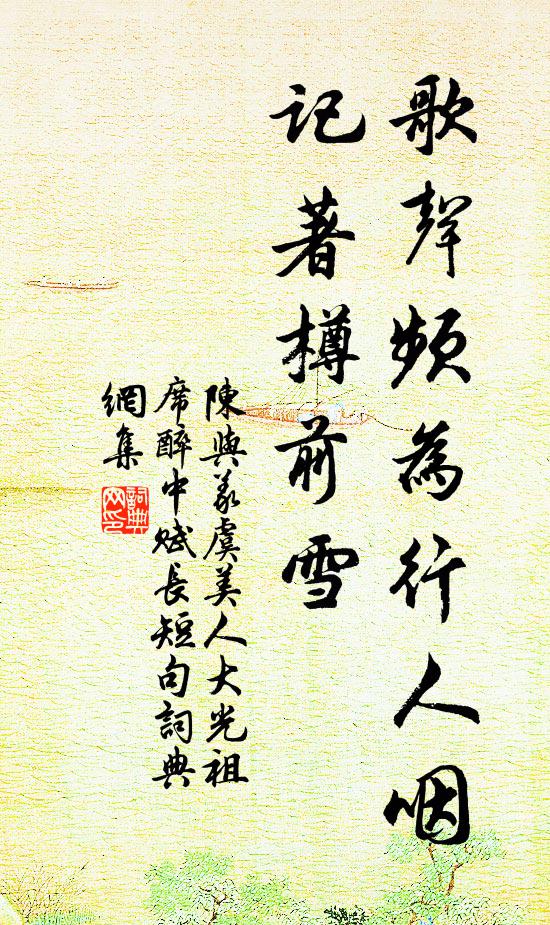 歌聲頻為行人咽
記著樽前雪
陳與義虞美人大光祖
席醉中賦長短句詞典
網集
詞典網印